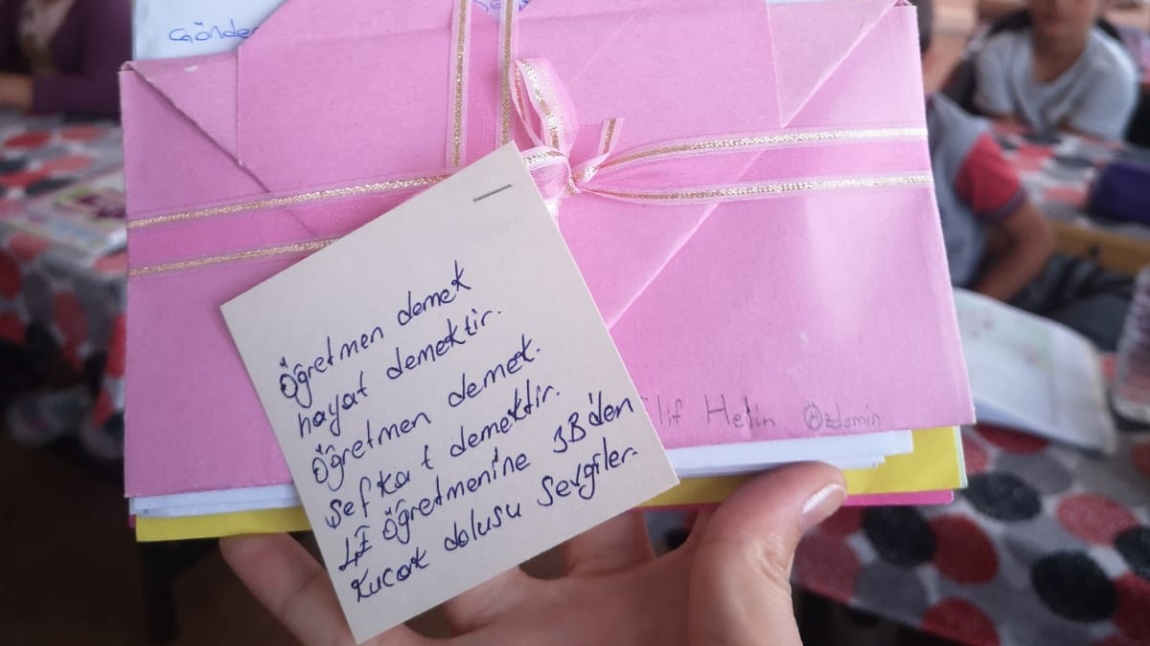 Gönder
Öğretmen demek
hayat demektir.
Öğretmen demek.
Şefkat demektir.
4I öğretmeni'ne 3B'den
Kucak dolusu Sevgiler.
lif Helin Özdemin